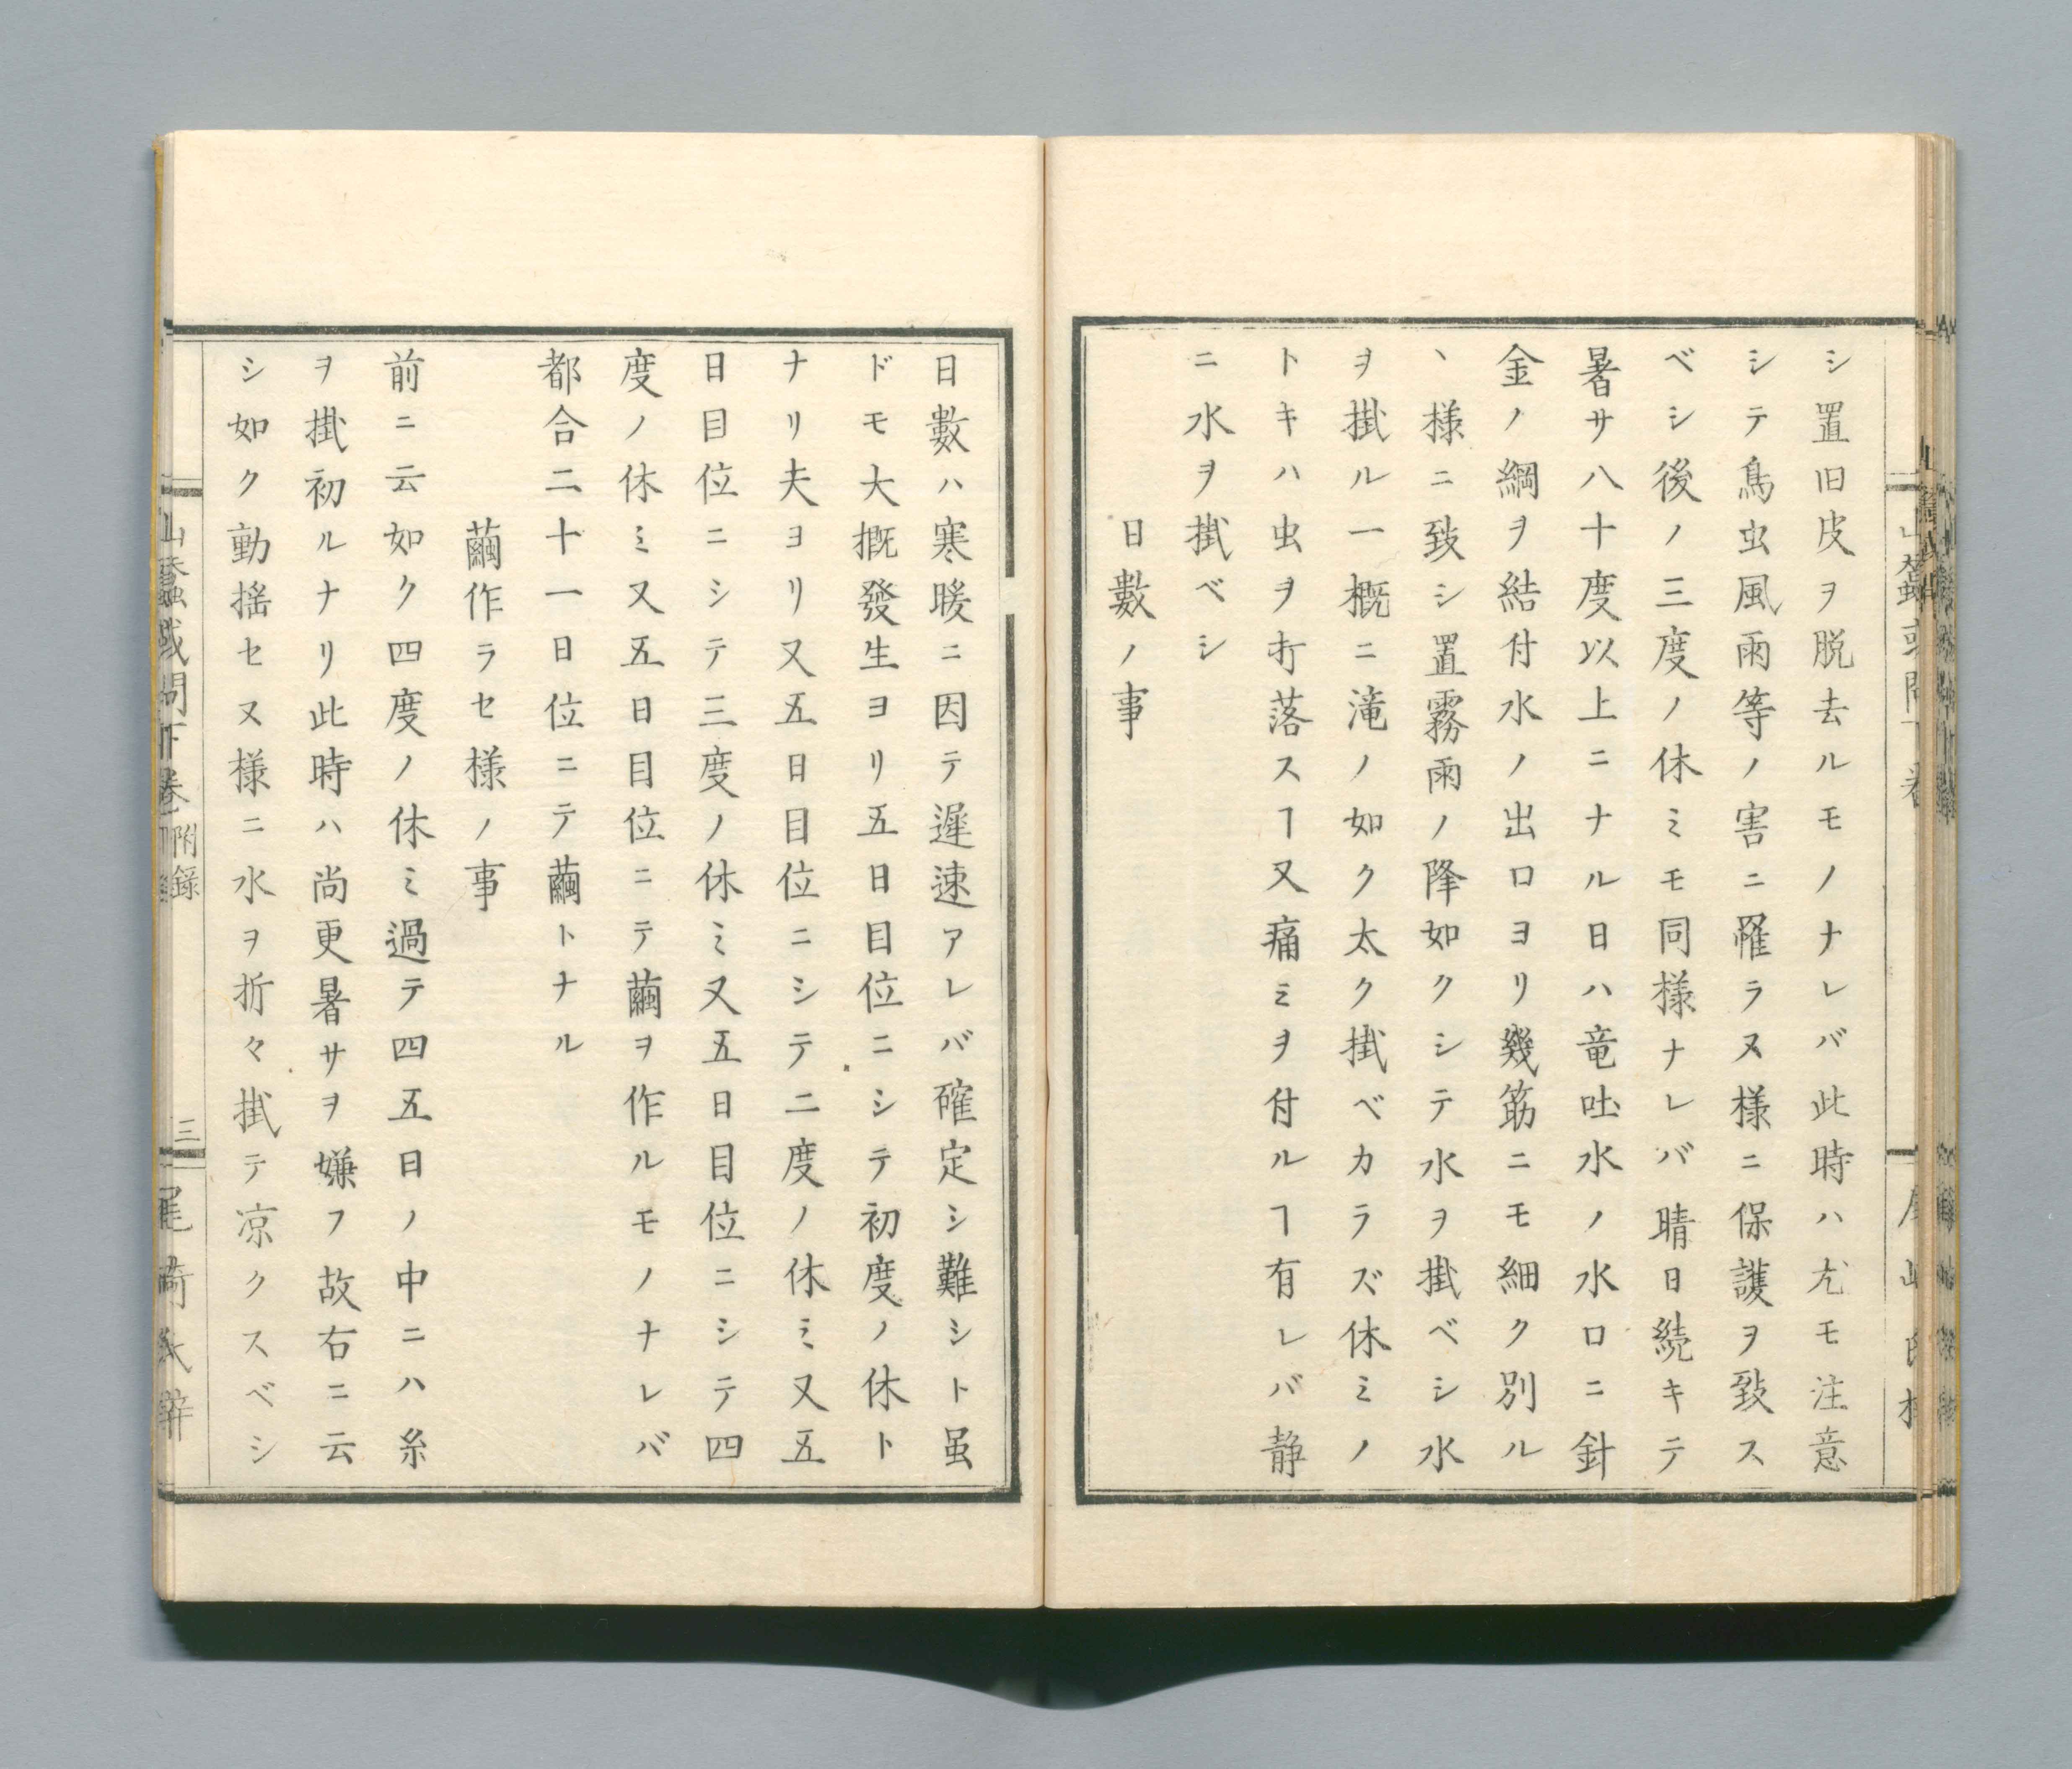 シ置旧皮ヲ脱去ルモノナレバ此時ハ尤モ注意
シテ鳥虫風雨等ノ害ニ罹ラヌ様ニ保護ヲ致ス
ベシ後ノ三度ノ休ミモ同様ナレバ晴日続キテ
暑サ八十度以上ニナル日ハ竜吐水ノ水口ニ針
金ノ綱ヲ結付水ノ出口ヨリ幾筋ニモ細ク別ル
ヽ様ニ致シ置霧雨ノ降如クシテ水ヲ掛ベシ水
ヲ掛ル一概ニ滝ノ如ク太ク掛ベカラズ休ミノ
トキハ虫ヲ打落スヿ又痛ミヲ付ルヿ有レバ静
ニ水ヲ掛ベシ
日數ノ事
日數ハ寒暖ニ因テ遲速アレバ確定シ難シト虽
ドモ大概發生ヨリ五日目位ニシテ初度ノ休ト
ナリ夫ヨリ又五日目位ニシテ二度ノ休ミ又五
日目位ニシテ三度ノ休ミ又五日目位ニシテ四
度ノ休ミ又五日目位ニテ繭ヲ作ルモノナレバ
都合二十一日位ニテ繭トナル
繭作ラセ様ノ事
前ニ云如ク四度ノ休ミ過テ四五日ノ中ニハ糸
ヲ掛初ルナリ此時ハ尚更暑サヲ嫌フ故右ニ云
シ如ク動揺セヌ様ニ水ヲ折々掛テ凉クスベシ
山蠶或問下巻 附録 三